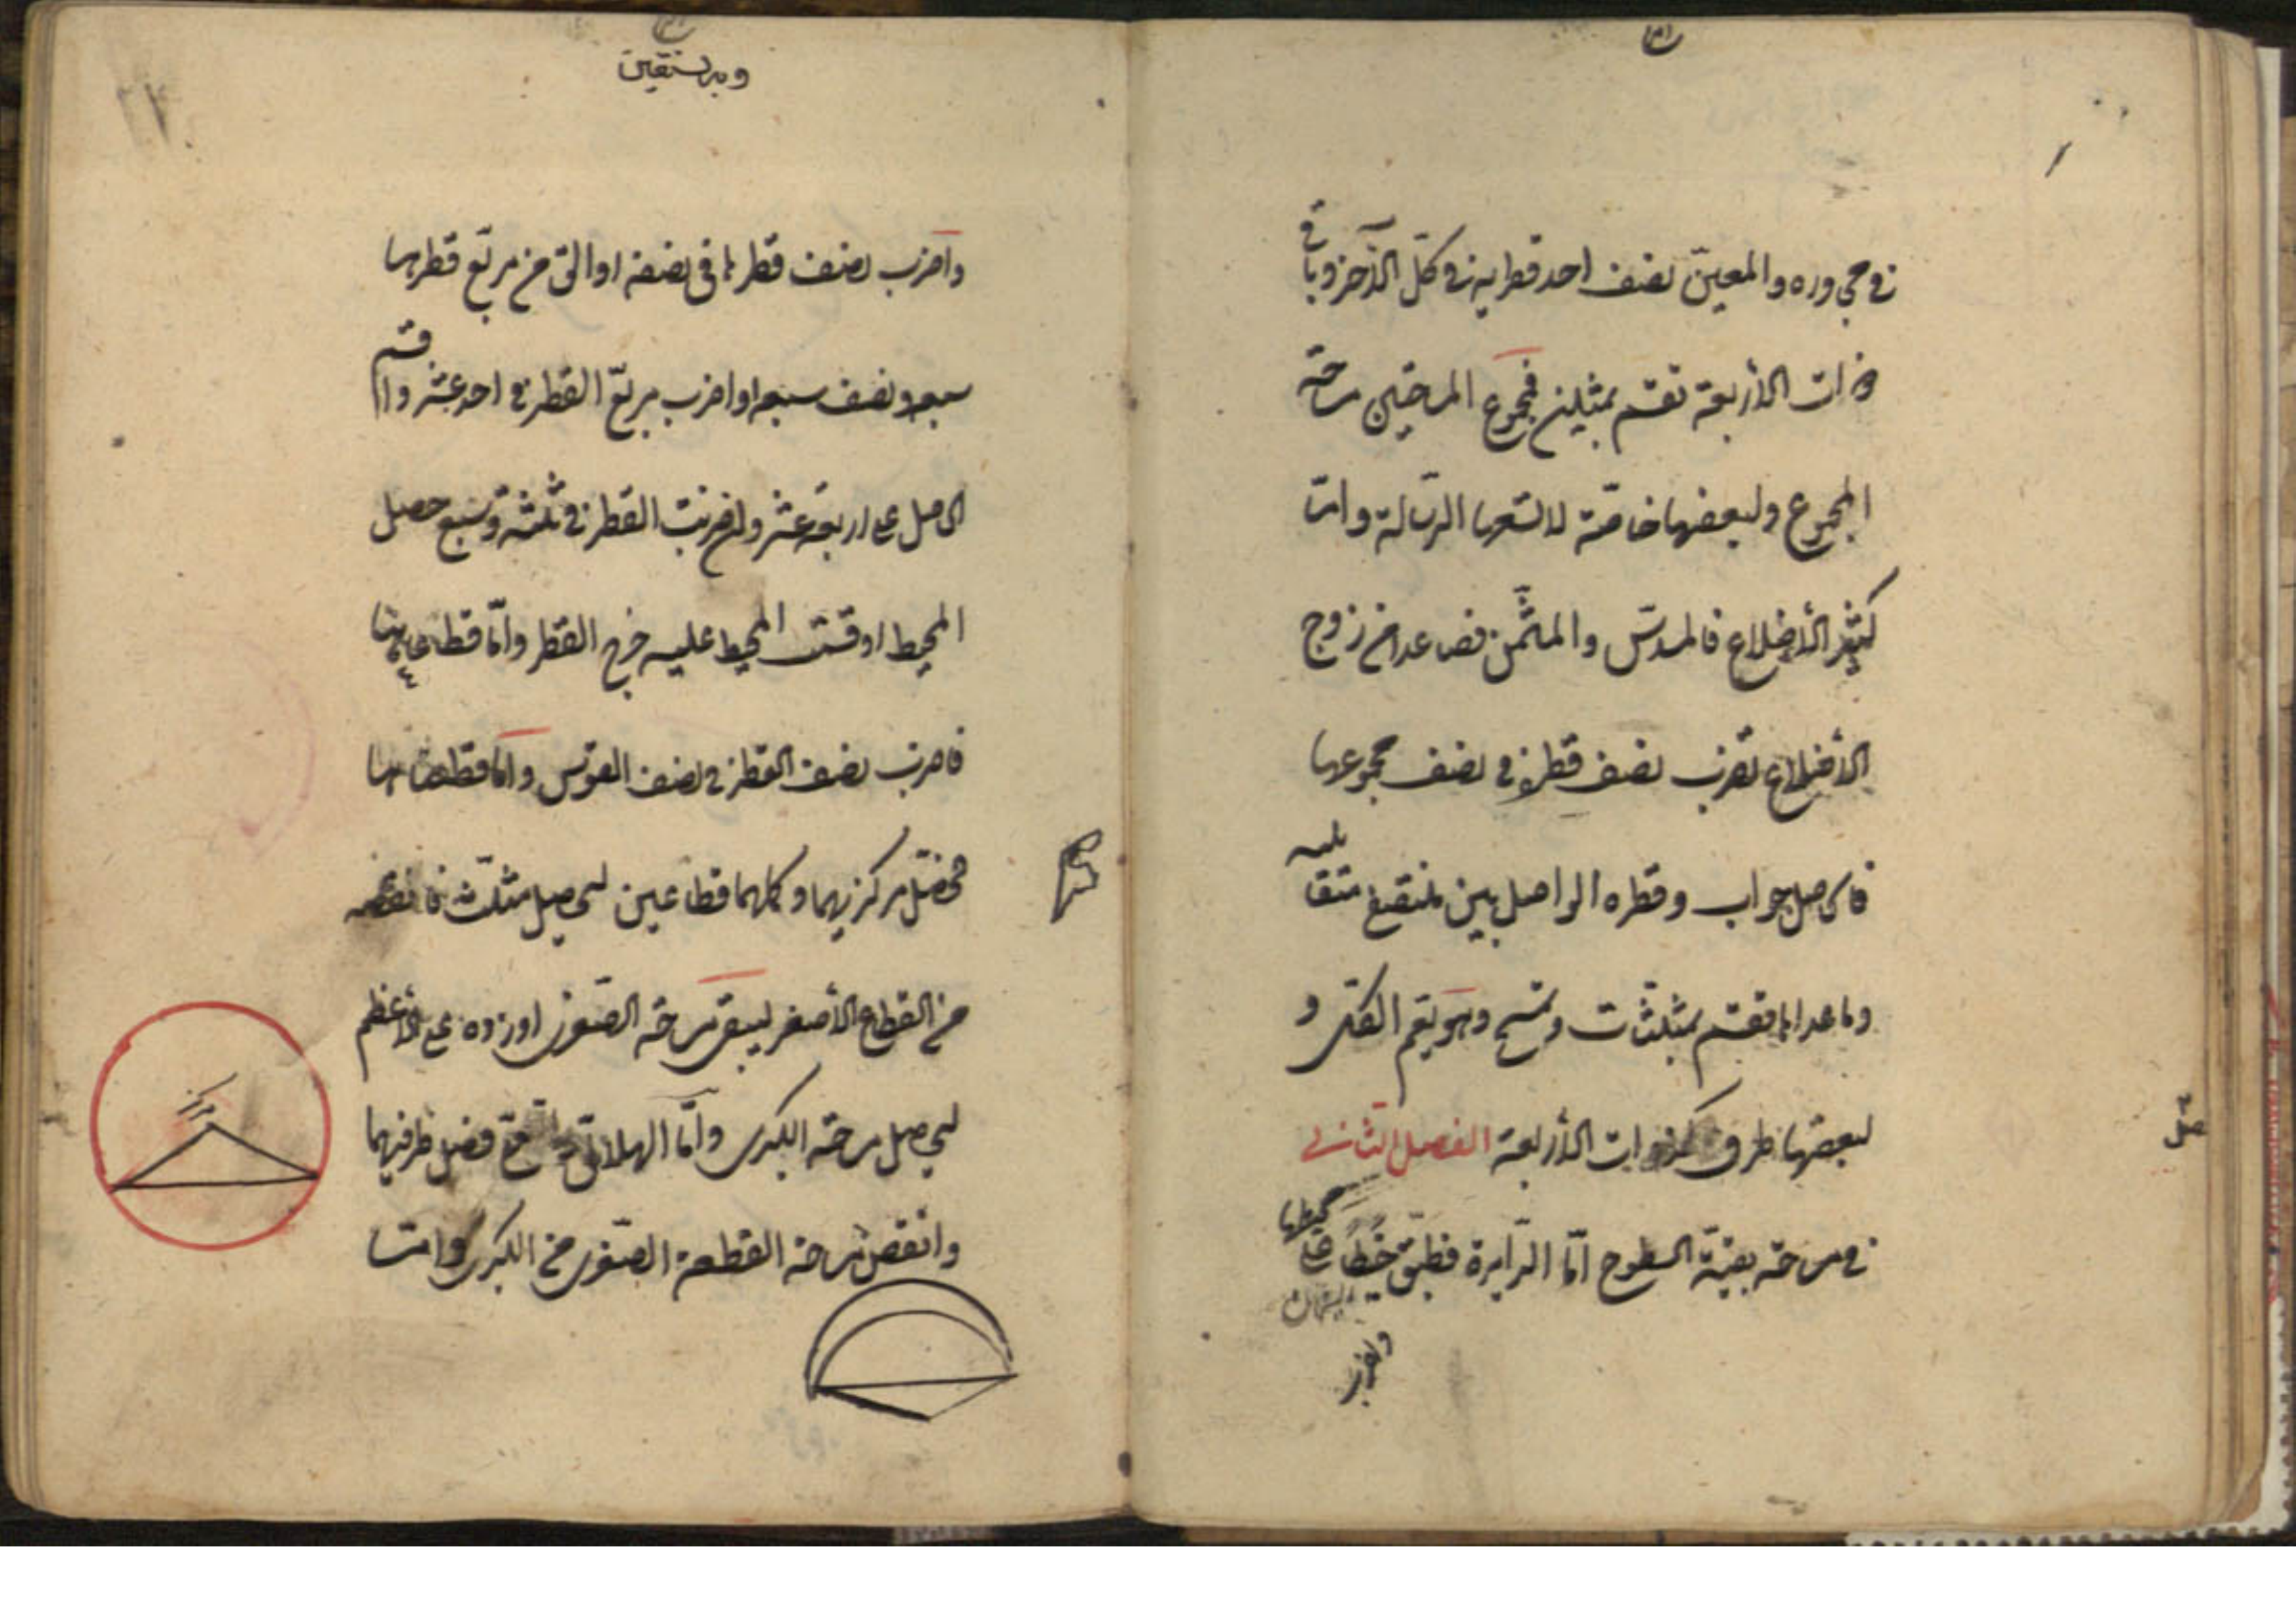 في مجاوره والمعين نصف احد قطريه في كل الآخر وباقي
ذوات الأربعة تقسم بمثلثين فمجموع المساحتين مساحة
المجموع ولبعضها خاصة لا تسعها الرسالة وامّا
كثير الأضلاع فالمسدّس والمثمّن فصاعدا من زوج
الأضلاع تضرب نصف قطره في نصف مجموعها
فالحاصل جواب وقطره الواصل بين منتصفي متقابليه
وما عداها تقسم بمثلثات وتمسح وهو يعمّ الكلّ و
لبعضها طرق كذوات الأربعة الفصل الثاني
في مساحة بقيّة السطوح امّا الدّايرة فطبّق خيطًا على محيطها
واضرب
واضرب نصف قطرها في نصفه او الق من مربّع قطرها
سبعه ونصف سبعه او اضرب مربّع القطر في احد عشر واقسم
الحاصل على اربعة عشر وان ضربت القطر في ثلثة وسبع حصل
المحيط او قسمت المحيط عليه خرج القطر وامّا قطاعاها
فاضرب نصف القطر في نصف القوس وامّا قطعتاها
فحصّل مركزيهما وكملهما قطاعين ليحصل مثلّث فانقصه
من القطاع الأصغر ليبقى مساحة الصغرى او زده على الأعظم
ليحصل مساحة الكبرى وامّا الهلالي فصل طرفيهما
وانقص مساحة القطعة الصغرى من الكبرى وامّا